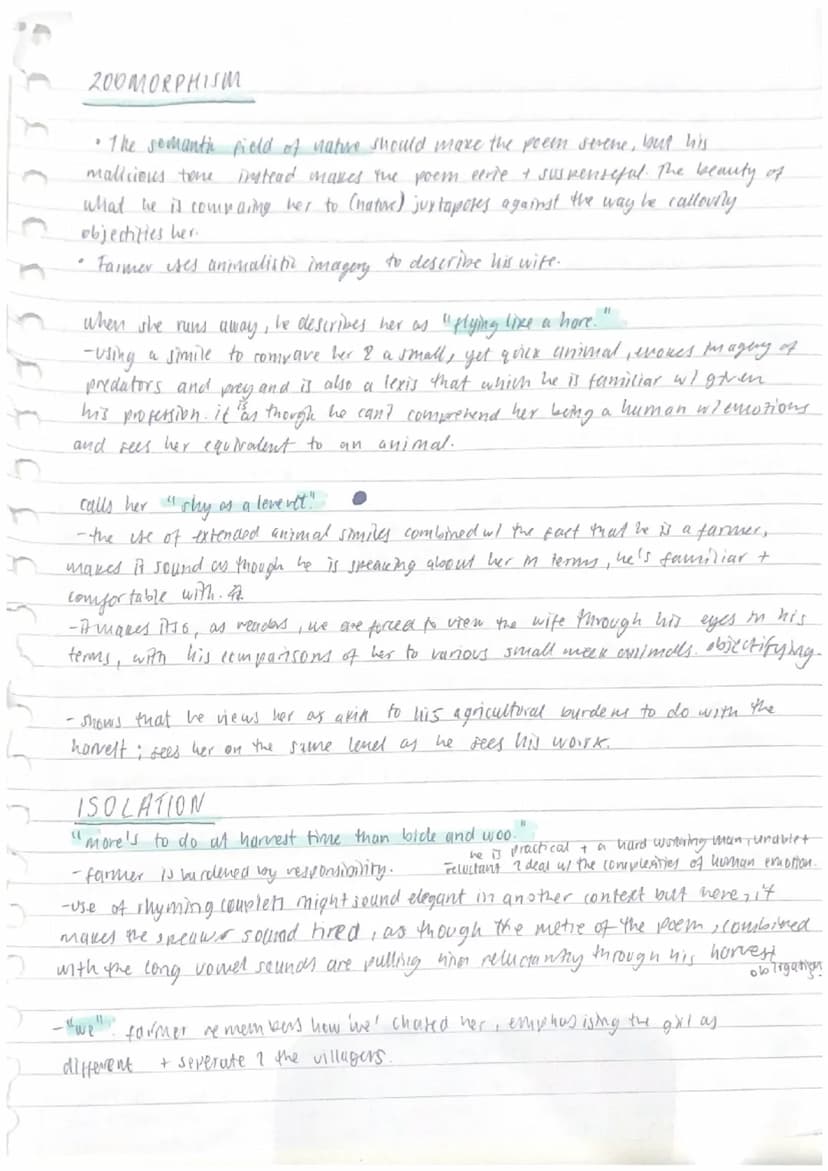 ZOOMORPHISM
• The semantic field of nature should make the poem serene, but his
malicious tone instead makes the poem eerie + suspenseful. The beauty of
what he is comparing her to (nature) juxtaposes against the way he callously
objectifies her.
• Farmer uses animalistic imagery to describe his wife.
when she runs away, he describes her as "flying like a hare."
-using a simile to compare her 2 a small, yet quick animal, evokes imagery of
predators and prey and is also a lexis that which he is familiar w/ given
his profession. it is as though he can't comprehend her being a human w/ emotions
and sees her equivalent to an animal.
calls her "shy as a leverett."
-the use of extended animal similes combined w/ the fact that he is a farmer,
makes it sound as though he is speaking about her in terms, he's familiar +
comfortable with.
-it makes it so, as readers, we are forced to view the wife through his eyes in his
terms, with his comparisons of her to various small meek animals. objectifying.
- shows that he views her as akin to his agricultural burdens to do with the
harvest ; sees her on the same level as he sees his work.
ISOLATION
"more's to do at harvest time than bide and woo."
- farmer is burdened by responsibility.
he is practical + a hard working man, unable +
reluctant 2 deal w/ the complexities of human emotion.
-use of rhyming couplets might sound elegant in another context but here, it
makes the speaker sound tired, as though the metre of the poem, combined
with the long vowel sounds are pulling him reluctantly through his harvest
obligation.
-"we". farmer remembers how 'we' chased her, emphasising the girl as
different + seperate 2 the villagers.